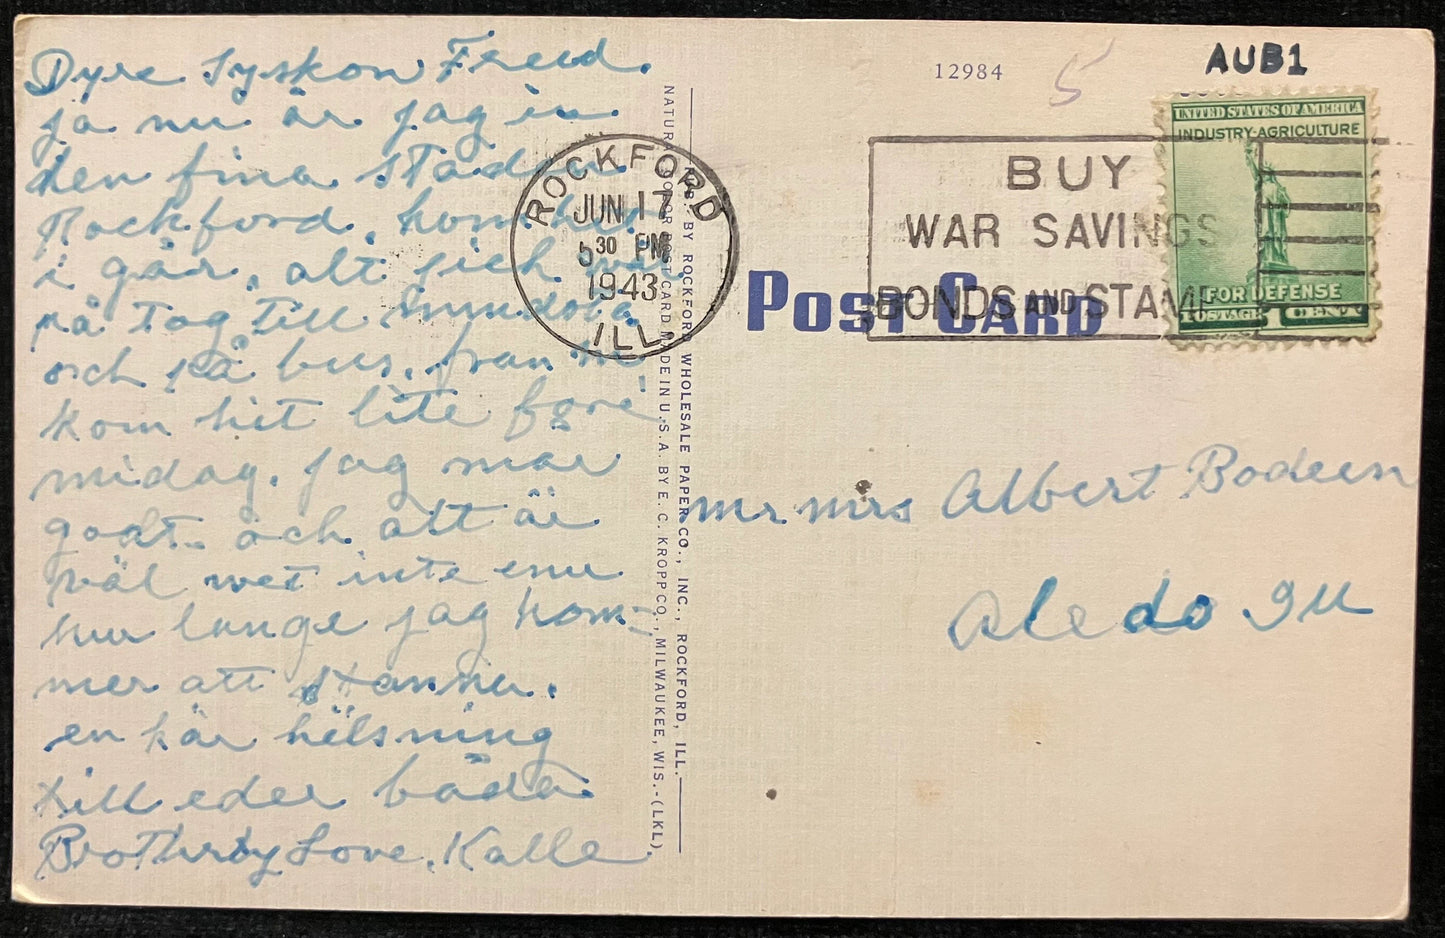 Dyre Syskon Freed.
ja nu är jag in
den fina staden
Rockford, kom hit
i går, alt gick
på Tog till Mendota
och på bus, från M
kom hit lite före
midag. jag mår
godt. och alt är
väl wet inte enu
hur länge jag kom=
mer att stanna.
en kär hälsning
till eder båda
Brotherly Love, Kalle.
NATURAL COLOR POST CARD MADE IN U.S.A. BY E. C. KROPP CO., MILWAUKEE, WIS.-(LKL).
PUB. BY ROCKFORD WHOLESALE PAPER CO., INC., ROCKFORD, ILL.
12984
5
AUB1
ROCKFORD
JUN 17
5 30 PM
1943
ILL.
BUY
WAR SAVINGS
BONDS AND STAMPS
UNITED STATES OF AMERICA
INDUSTRY-AGRICULTURE
FOR DEFENSE
POSTAGE 1 CENT
POST CARD
Mr Mrs Albert Bodeen
Aledo Ill